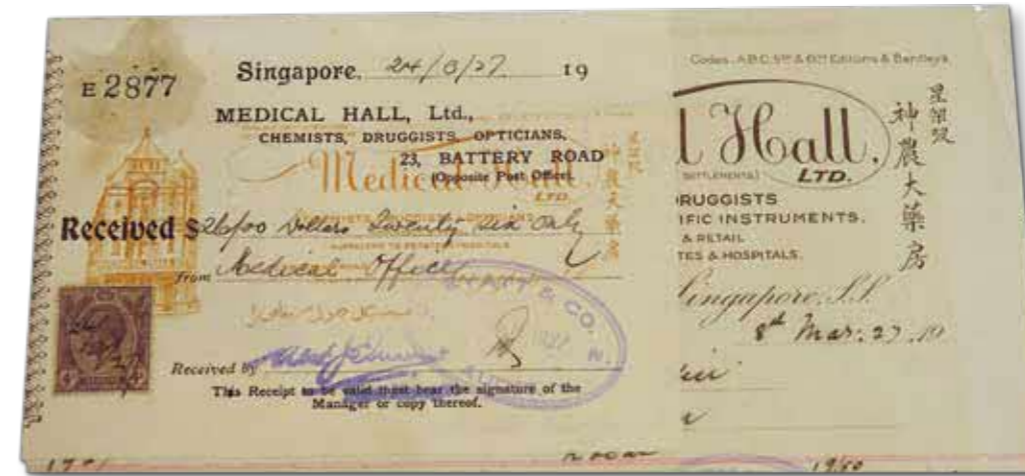 E 2877
Singapore, 24/3/27 19
MEDICAL HALL, Ltd.,
CHEMISTS, DRUGGISTS, OPTICIANS,
23, BATTERY ROAD
(Opposite Post Office).
Medical Hall,
LTD.
Received $26/00 Dollars Twenty Six Only
from Medical Office
Received by
This Receipt to be valid must bear the signature of the
Manager or copy thereof.
& CO.
Codes: A.B.C. 5TH & 6TH Editions & Bentleys.
l Hall,
LTD.
RUGGISTS
IFIC INSTRUMENTS.
& RETAIL
TES & HOSPITALS.
ingapore, S.S.
8th Mar: 27. 19
神農大藥房